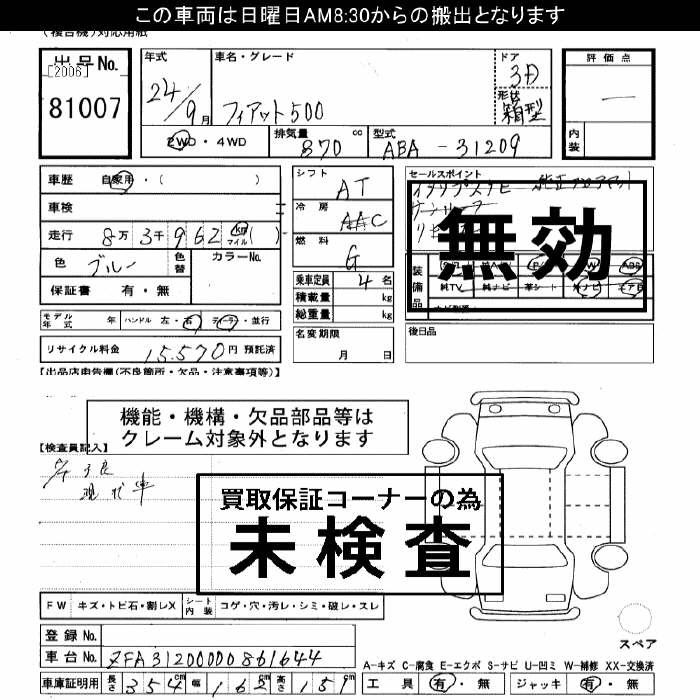 この車両は日曜日AM8:30からの搬出となります
(複合機)対応用紙
出品No. [2006] 81007
年式 24/9月
車名・グレード フィアット500
ドア 3D
形状 箱型
評価点 —
内装
2WD・4WD
排気量 870 cc
型式 ABA-31209
車歴 自家用・( )
車検
走行 8万3千962 km マイル( )
色 ブルー 色替 カラーNo.
保証書 有・無
シフト AT
冷房 AAC
燃料 G
乗車定員 4名
積載量 kg
総重量 kg
名変期限 月 日
セールスポイント
無効
装備品
ABS
純TV 純ナビ 革シート 外ナビ エアB
後日品
モデル年式 年 ハンドル 左・右 ディーラー・並行
リサイクル料金 15,570円 預託済
【出品店申告欄(不良箇所・欠品・注意事項等)】
機能・機構・欠品部品等は
クレーム対象外となります
【検査員記入】
現状車
買取保証コーナーの為
未検査
FW キズ・トビ石・割レX シート内装 コゲ・穴・汚レ・シミ・破レ・スレ
スペア
登録No.
車台No. ZFA3120000J861644
A-キズ C-腐食 E-エクボ S-サビ U-凹ミ W-補修 XX-交換済
車庫証明用 長さ 354cm 幅 162cm 高さ 151cm
工具 有・無 ジャッキ 有・無